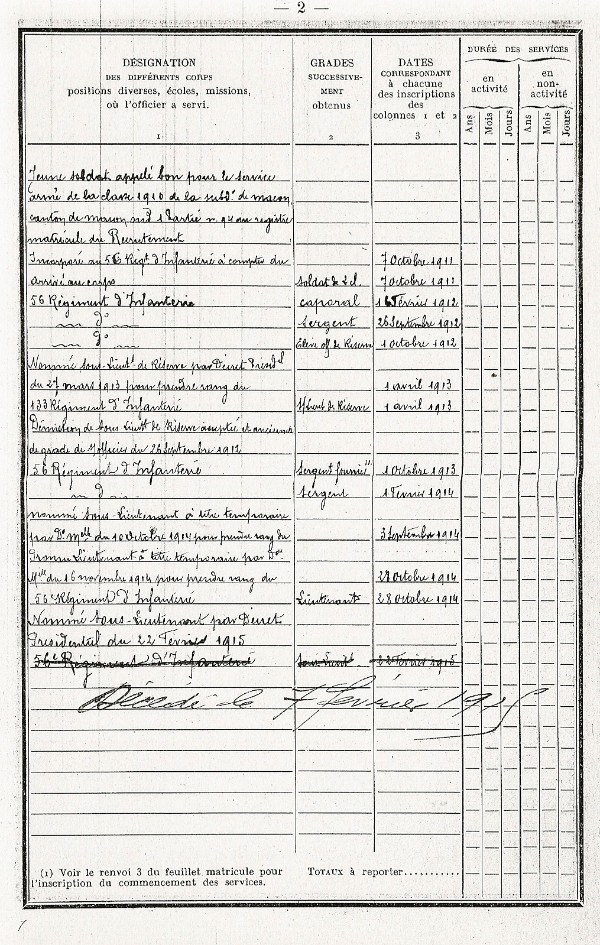 — 2 —
DÉSIGNATION
DES DIFFÉRENTS CORPS
positions diverses, écoles, missions,
où l'officier a servi.
1
GRADES
SUCCESSIVE-
MENT
obtenus
2
DATES
CORRESPONDANT
à chacune
des inscriptions
des
colonnes 1 et 2
3
DURÉE DES SERVICES
en
activité
en
non-
activité
Ans
Mois
Jours
Ans
Mois
Jours
Jeune soldat appelé bon pour le service
armé de la classe 1910 de la subdon de macon
canton de macon 1 Partie n. 94 au registre
matricule du Recrutement
Incorporé au 56 Regt d'Infanterie à compter du 7 Octobre 1911
arrivé au corps soldat de 2 cl. 7 octobre 1911
56 Régiment d'Infanterie caporal 16 Février 1912
do Sergent 26 Septembre 1912
do Elève off de Réserve 1 octobre 1912
Nommé Sous-Lieutt de Réserve par Décret Présidel
du 27 mars 1913 pour prendre rang du 1 avril 1913
133 Régiment d'Infanterie S/Lieut de Réserve 1 avril 1913
Démission de Sous Lieutt de Réserve acceptée et ancienneté
de grade de S/officier du 26 Septembre 1912
56 Régiment d'Infanterie Sergent fourrier 1 Octobre 1913
do Sergent 1 Février 1914
nommé Sous-Lieutenant à titre temporaire
par Don Melle du 10 Octobre 1914 pour prendre rang du 3 Septembre 1914
Promu Lieutenant à titre temporaire par Don
Melle du 16 novembre 1914 pour prendre rang du 28 octobre 1914
56 Régiment d'Infanterie Lieutenant 28 octobre 1914
Nommé Sous-Lieutenant par Décret
Présidentiel du 22 Février 1915
56e Régiment d'Infanterie Sous-Lieutt 22 Février 1915
Décédé le 7 février 1915
(1) Voir le renvoi 3 du feuillet matricule pour
l'inscription du commencement des services.
TOTAUX à reporter...........